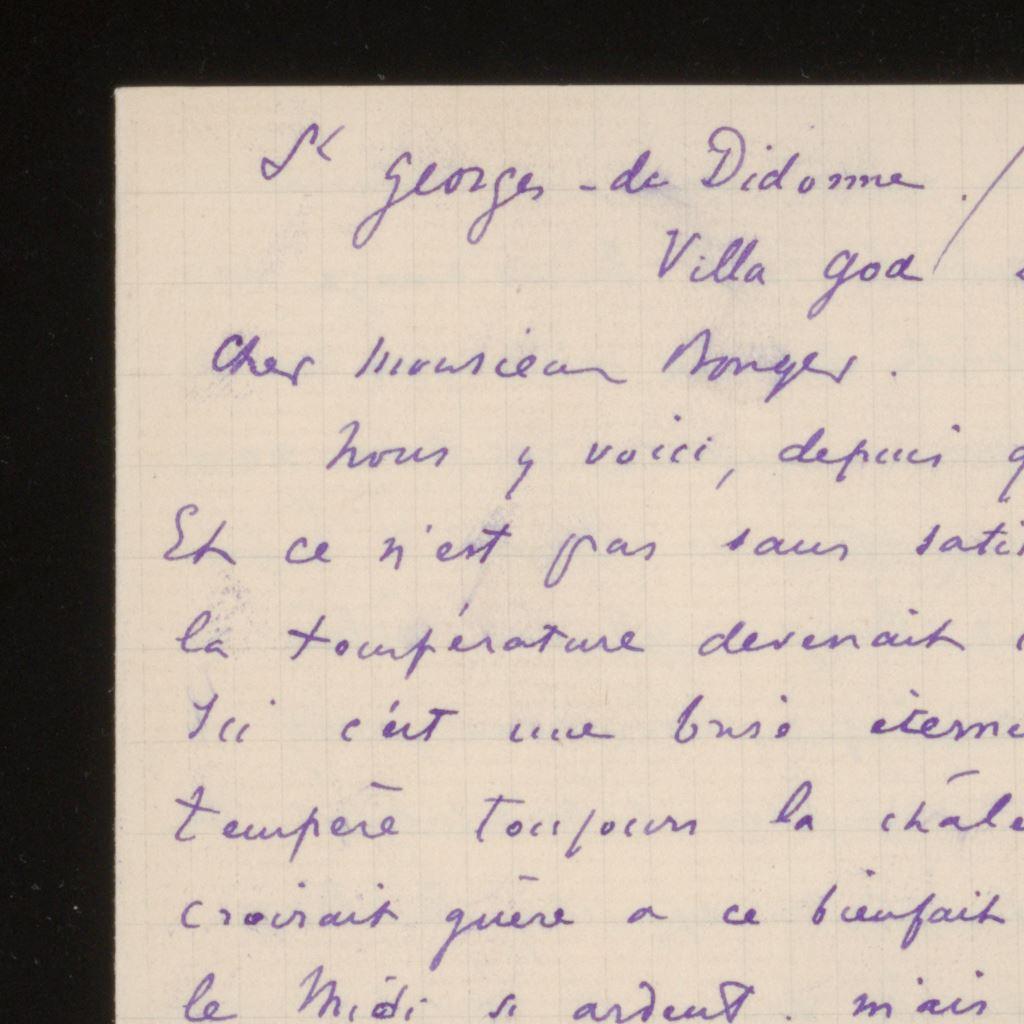 St Georges-de Didonne.
Villa Goa
Cher Monsieur Bonger.
Nous y voici, depuis
Et ce n'est pas sans
la température devenait
Ici c'est une brise
tempère toujours la
croirait guère a ce bienfait
le Midi si ardent. mais